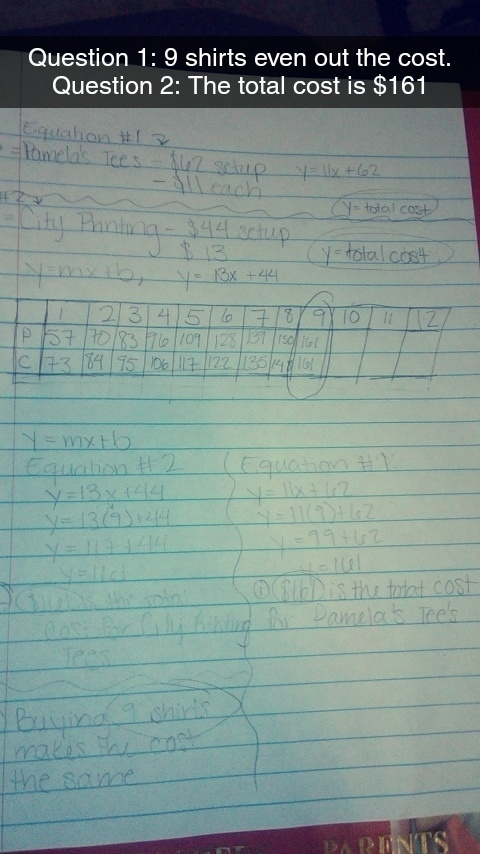 Question 1: 9 shirts even out the cost.
Question 2: The total cost is $161
Equation #1
= Pamela's Tees - $62 setup y=11x+62
- $11 each
y=total cost
#2
= City Printing - $44 setup
$13
y=total cost
y=mx+b, y= 13x+44
1 2 3 4 5 6 7 8 9 10 11 12
P 57 70 83 96 109 128 137 150 161
C 73 84 95 106 117 122 135 148 161
y=mx+b
Equation #2
Equation #1
y=13x+44
y=11x+62
y=13(9)+44
y=11(9)+62
y=117+44
y=99+62
y=161
y=161
($161) is the total
cost for City Printing
Tees
① ($161) is the total cost
for Pamela's Tee's
Buying 9 shirts
makes the cost
the same
PARENTS